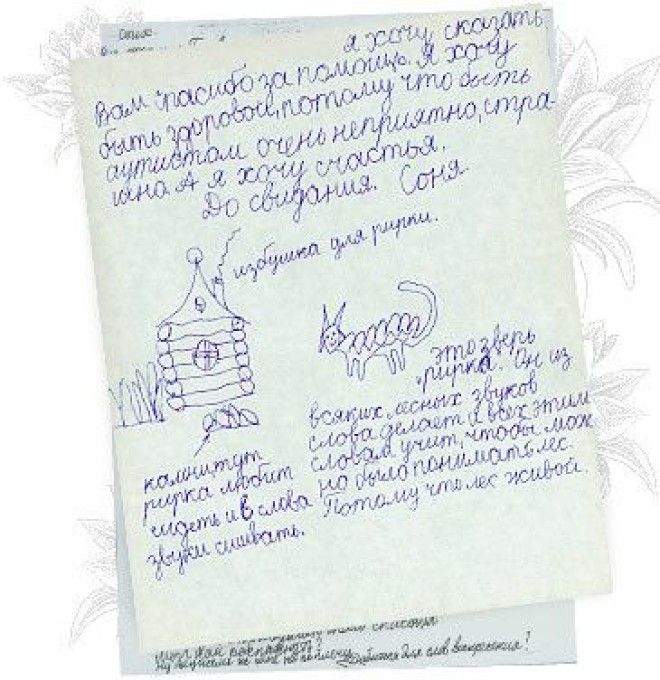 я хочу сказать
Вам спасибо за помощь. Я хочу
быть здоровой, потому что быть
аутистом очень неприятно, стра-
шно. А я хочу счастья.
До свидания. Соня.
избушка для рирки.
это зверь
"рирка". Он из
всяких лесных звуков
слова делает и всех этим
словам учит, чтобы мож
но было понимать лес.
Потому что лес живой
камни, тут
рирка любит
сидеть и в слова
звуки сшивать.